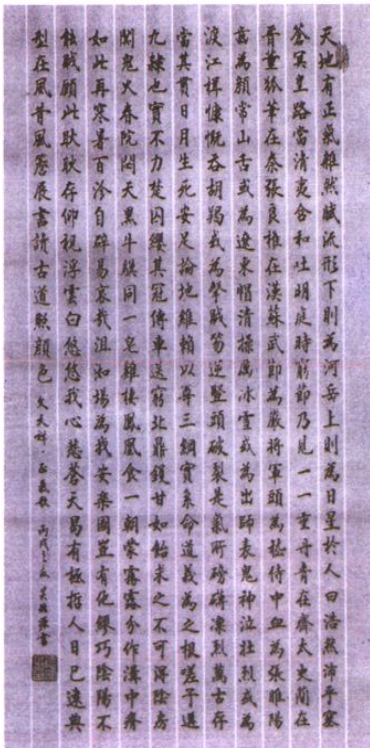 天地有正氣雜然賦流形下則為河岳上則為日星於人曰浩然沛乎塞
蒼冥皇路當清夷含和吐明庭時窮節乃見一一垂丹青在齊太史簡在
晉董狐筆在秦張良椎在漢蘇武節為嚴將軍頭為嵇侍中血為張睢陽
齒為顏常山舌或為遼東帽清操厲冰雪或為出師表鬼神泣壯烈或為
渡江楫慷慨吞胡羯或為擊賊笏逆豎頭破裂是氣所磅礴凜烈萬古存
當其貫日月生死安足論地維賴以尊三綱實系命道義為之根嗟予遘
九隸也實不力楚囚纓其冠傳車送窮北鼎鑊甘如飴求之不可得陰房
闃鬼火春院閟天黑牛驥同一皂雞棲鳳凰食一朝蒙霧露分作溝中瘠
如此再寒暑百沴自碎易哀哉沮洳場為我安樂國豈有他繆巧陰陽不
能賊顧此耿耿存仰視浮雲白悠悠我心悲蒼天曷有極哲人日已遠典
型在夙昔風簷展書讀古道照顏色 文天祥·正氣歌 丙戌之 書